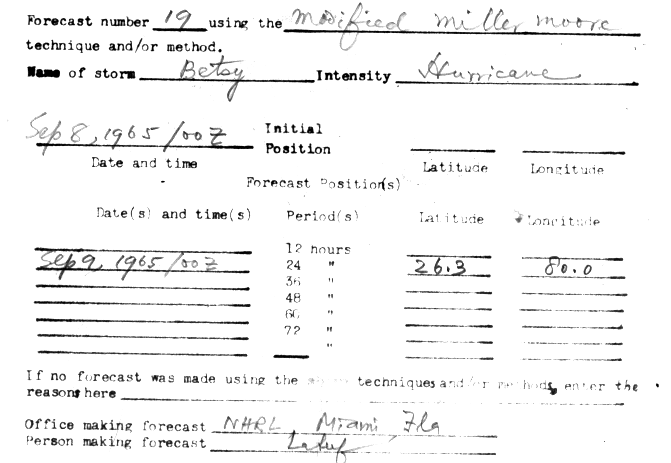 Forecast number 19 using the modified miller moore
technique and/or method.
Name of storm Betsy Intensity Hurricane
Sep 8, 1965/00Z Initial
Position
Date and time Latitude Longitude
Forecast Position(s)
Date(s) and time(s) Period(s) Latitude Longitude
12 hours
Sep 9, 1965/00Z 24 " 26.3 80.0
36 "
48 "
60 "
72 "
"
If no forecast was made using the techniques and/or methods, enter the
reasons here
Office making forecast NHRL, Miami, Fla
Person making forecast